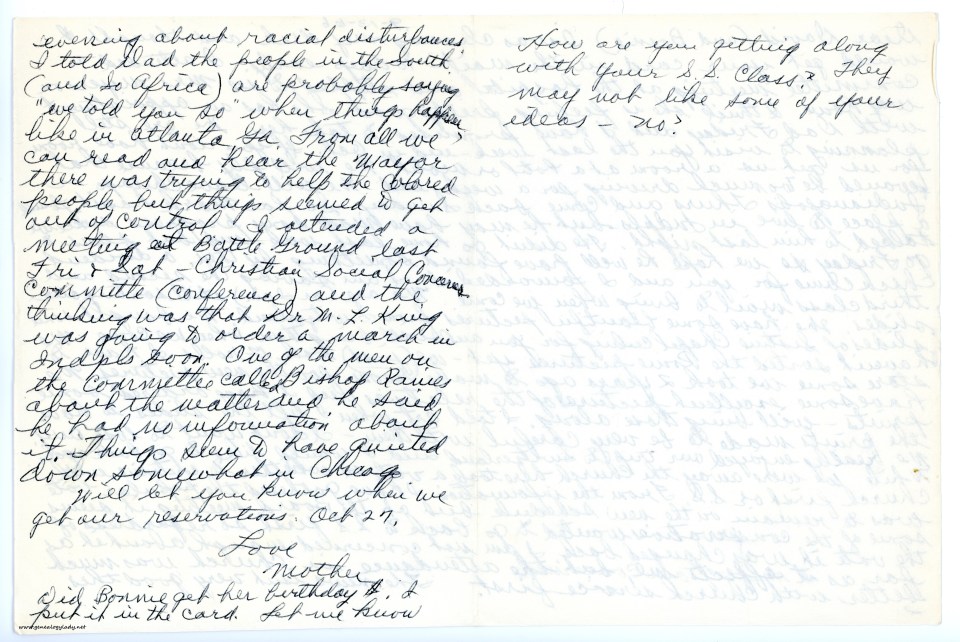 evening about racial disturbances
I told Dad the people in the South
(and So Africa) are probably saying
"we told you so" when things happen
like in Atlanta, Ga. From all we
can read and hear the Mayor
there was trying to help the Colored
people but things seemed to get
out of control. I attended a
meeting at Battle Ground last
Fri & Sat - Christian Social Concerns
Committe (conference) and the
thinking was that Dr M. L. King
was going to order a march in
Indpls soon. One of the men on
the Committee called Bishop
about the matter and he said
he had no information about
it. Things seem to have quieted
down somewhat in Chicago
Will let you know when we
get our reservations. Oct 27.
Love
Mother
Did Bonnie get her birthday $. I
put it in the card. Let me know
How are you getting along
with your S.S. Class? They
may not like some of your
ideas - no?
www.genealogylady.net